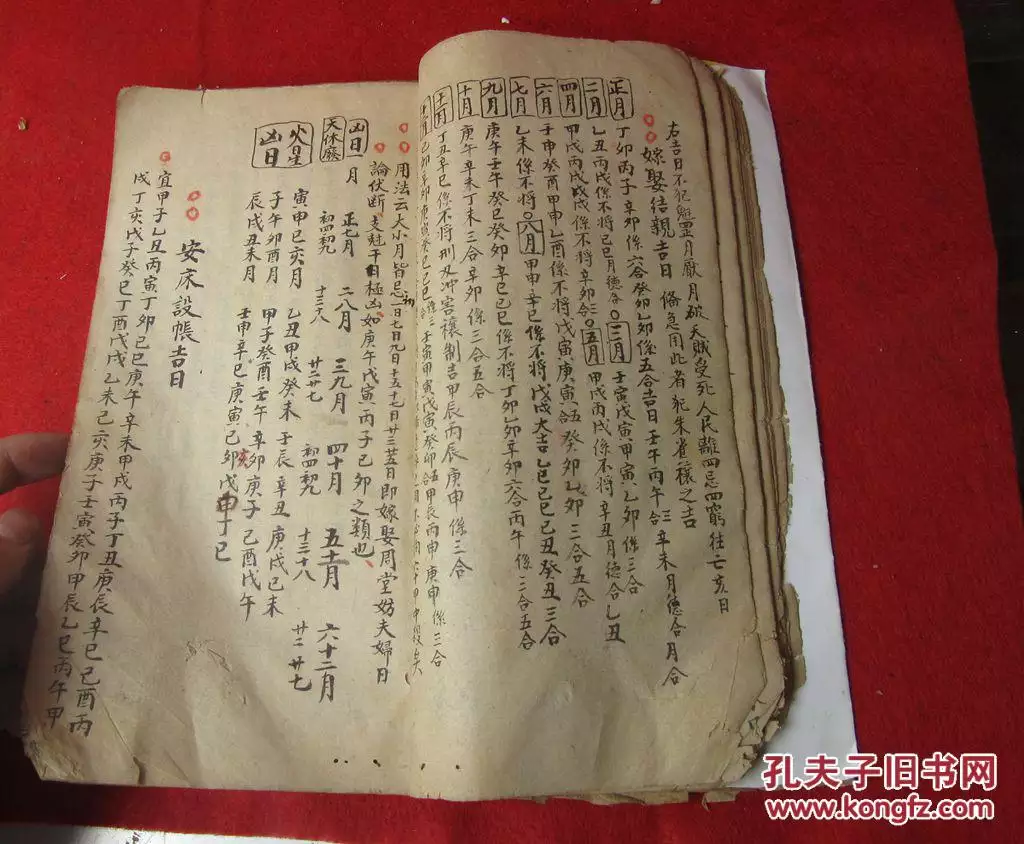 右吉日不犯魁罡月厭月破天賊受死人民離四忌四窮往亡亥日
嫁娶結親吉日 倫急用此者犯朱雀禳之吉
正月 丁卯丙子辛卯係六合癸卯乙卯係五合吉日壬午丙午合三辛未月德合月合
二月 乙丑丙戌係不將己巳月德合〇三月 壬寅戊寅甲寅乙卯係三合
四月 甲戌丙戌戊戌係不將辛卯合〇五月 甲戌丙戌係不將辛丑月德合乙丑
六月 壬申癸酉甲申乙酉係不將戊寅庚寅五合癸卯乙卯三合五合
七月 乙未係不將〇八月 甲申辛巳係不將戊戌大吉乙巳己巳己丑癸丑三合
九月 庚午壬午癸巳癸卯辛巳己巳係不將丁卯乙卯辛卯六合丙午係三合五合
十月 庚午辛未丁未三合辛卯係三合五合
丁丑辛巳係不將刑及冲害禳制吉甲辰丙辰庚申係三合
用法云大小月皆忌一日七日九日十五十七日廿三廿五日即嫁娶周堂妨夫婦日
論伏断支尅干日極凶如庚午戊寅丙子己卯之類也
凶日一月 正七月 二八月 三九月 四十月 五十一月 六十二月
天休廢 初四初九 十三十八 廿二廿七 初四初九 十三十八 廿二廿七
火星凶日 寅申巳亥月 乙丑甲戌癸未壬辰辛丑庚戌己未
子午卯酉月 甲子癸酉壬午辛卯庚子己酉戊午
辰戌丑未月 壬申辛巳庚寅己亥卯戊申丁巳
安床設帳吉日
宜甲子乙丑丙寅丁卯己巳庚午辛未甲戌丙子丁丑庚辰辛巳己酉丙
戌丁亥戊子癸巳丁酉戊戌乙未己亥庚子壬寅癸卯甲辰乙巳丙午甲
孔夫子旧书网
www.kongfz.com